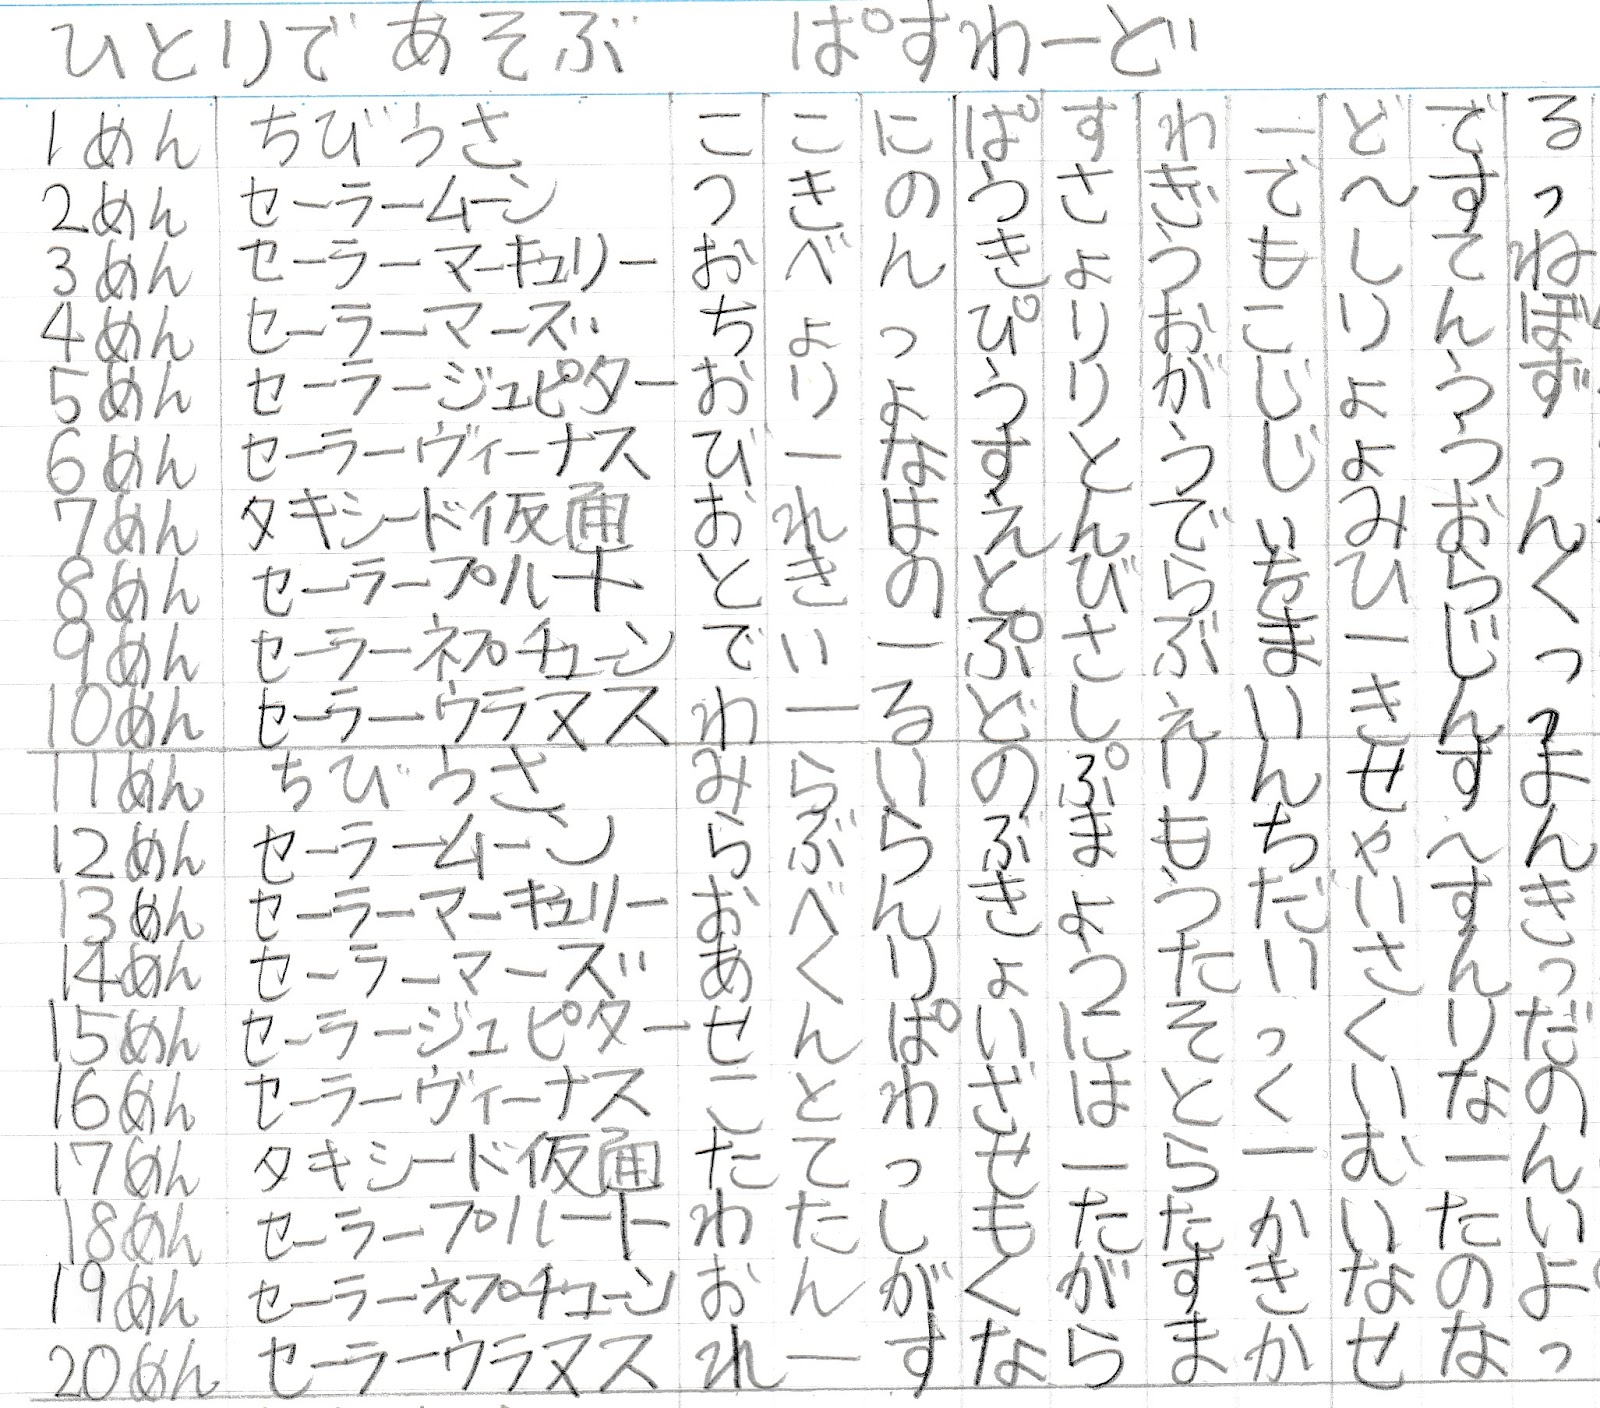 ひとりであそぶ ぱすわーど
1めん ちびうさ ここにぱすわーどでする
2めん セーラームーン つきのうさぎでーすっ
3めん セーラーマーキュリー おべんきょうもしてね
4めん セーラーマーズ おちょっぴりおこりんぼ
5めん セーラージュピター おりょうりがじょうず
6めん セーラーヴィーナス びーなすとうじょうつっ
7めん タキシード仮面 おれはえんでぃみおん
8めん セーラープルート ときのとびらをひらく
9めん セーラーネプチューン でぃーぷさぶまーじっ
10めん セーラーウラヌス わーるどしぇいきんっ
11めん ちびうさ みらいのぷりんせすよ
12めん セーラームーン らぶらぶまもちゃーん
13めん セーラーマーキュリー おべんきょうだいすき
14めん セーラーマーズ あくりょうたいさんっ
15めん セーラージュピター せんぱいにそっくりだ
16めん セーラーヴィーナス ことわざはとくいなの
17めん タキシード仮面 たてっせーらーむーん
18めん セーラープルート わたしもたたかいたい
19めん セーラーネプチューン おんがくがすきなのよ
20めん セーラーウラヌス れーすならまかせなっ